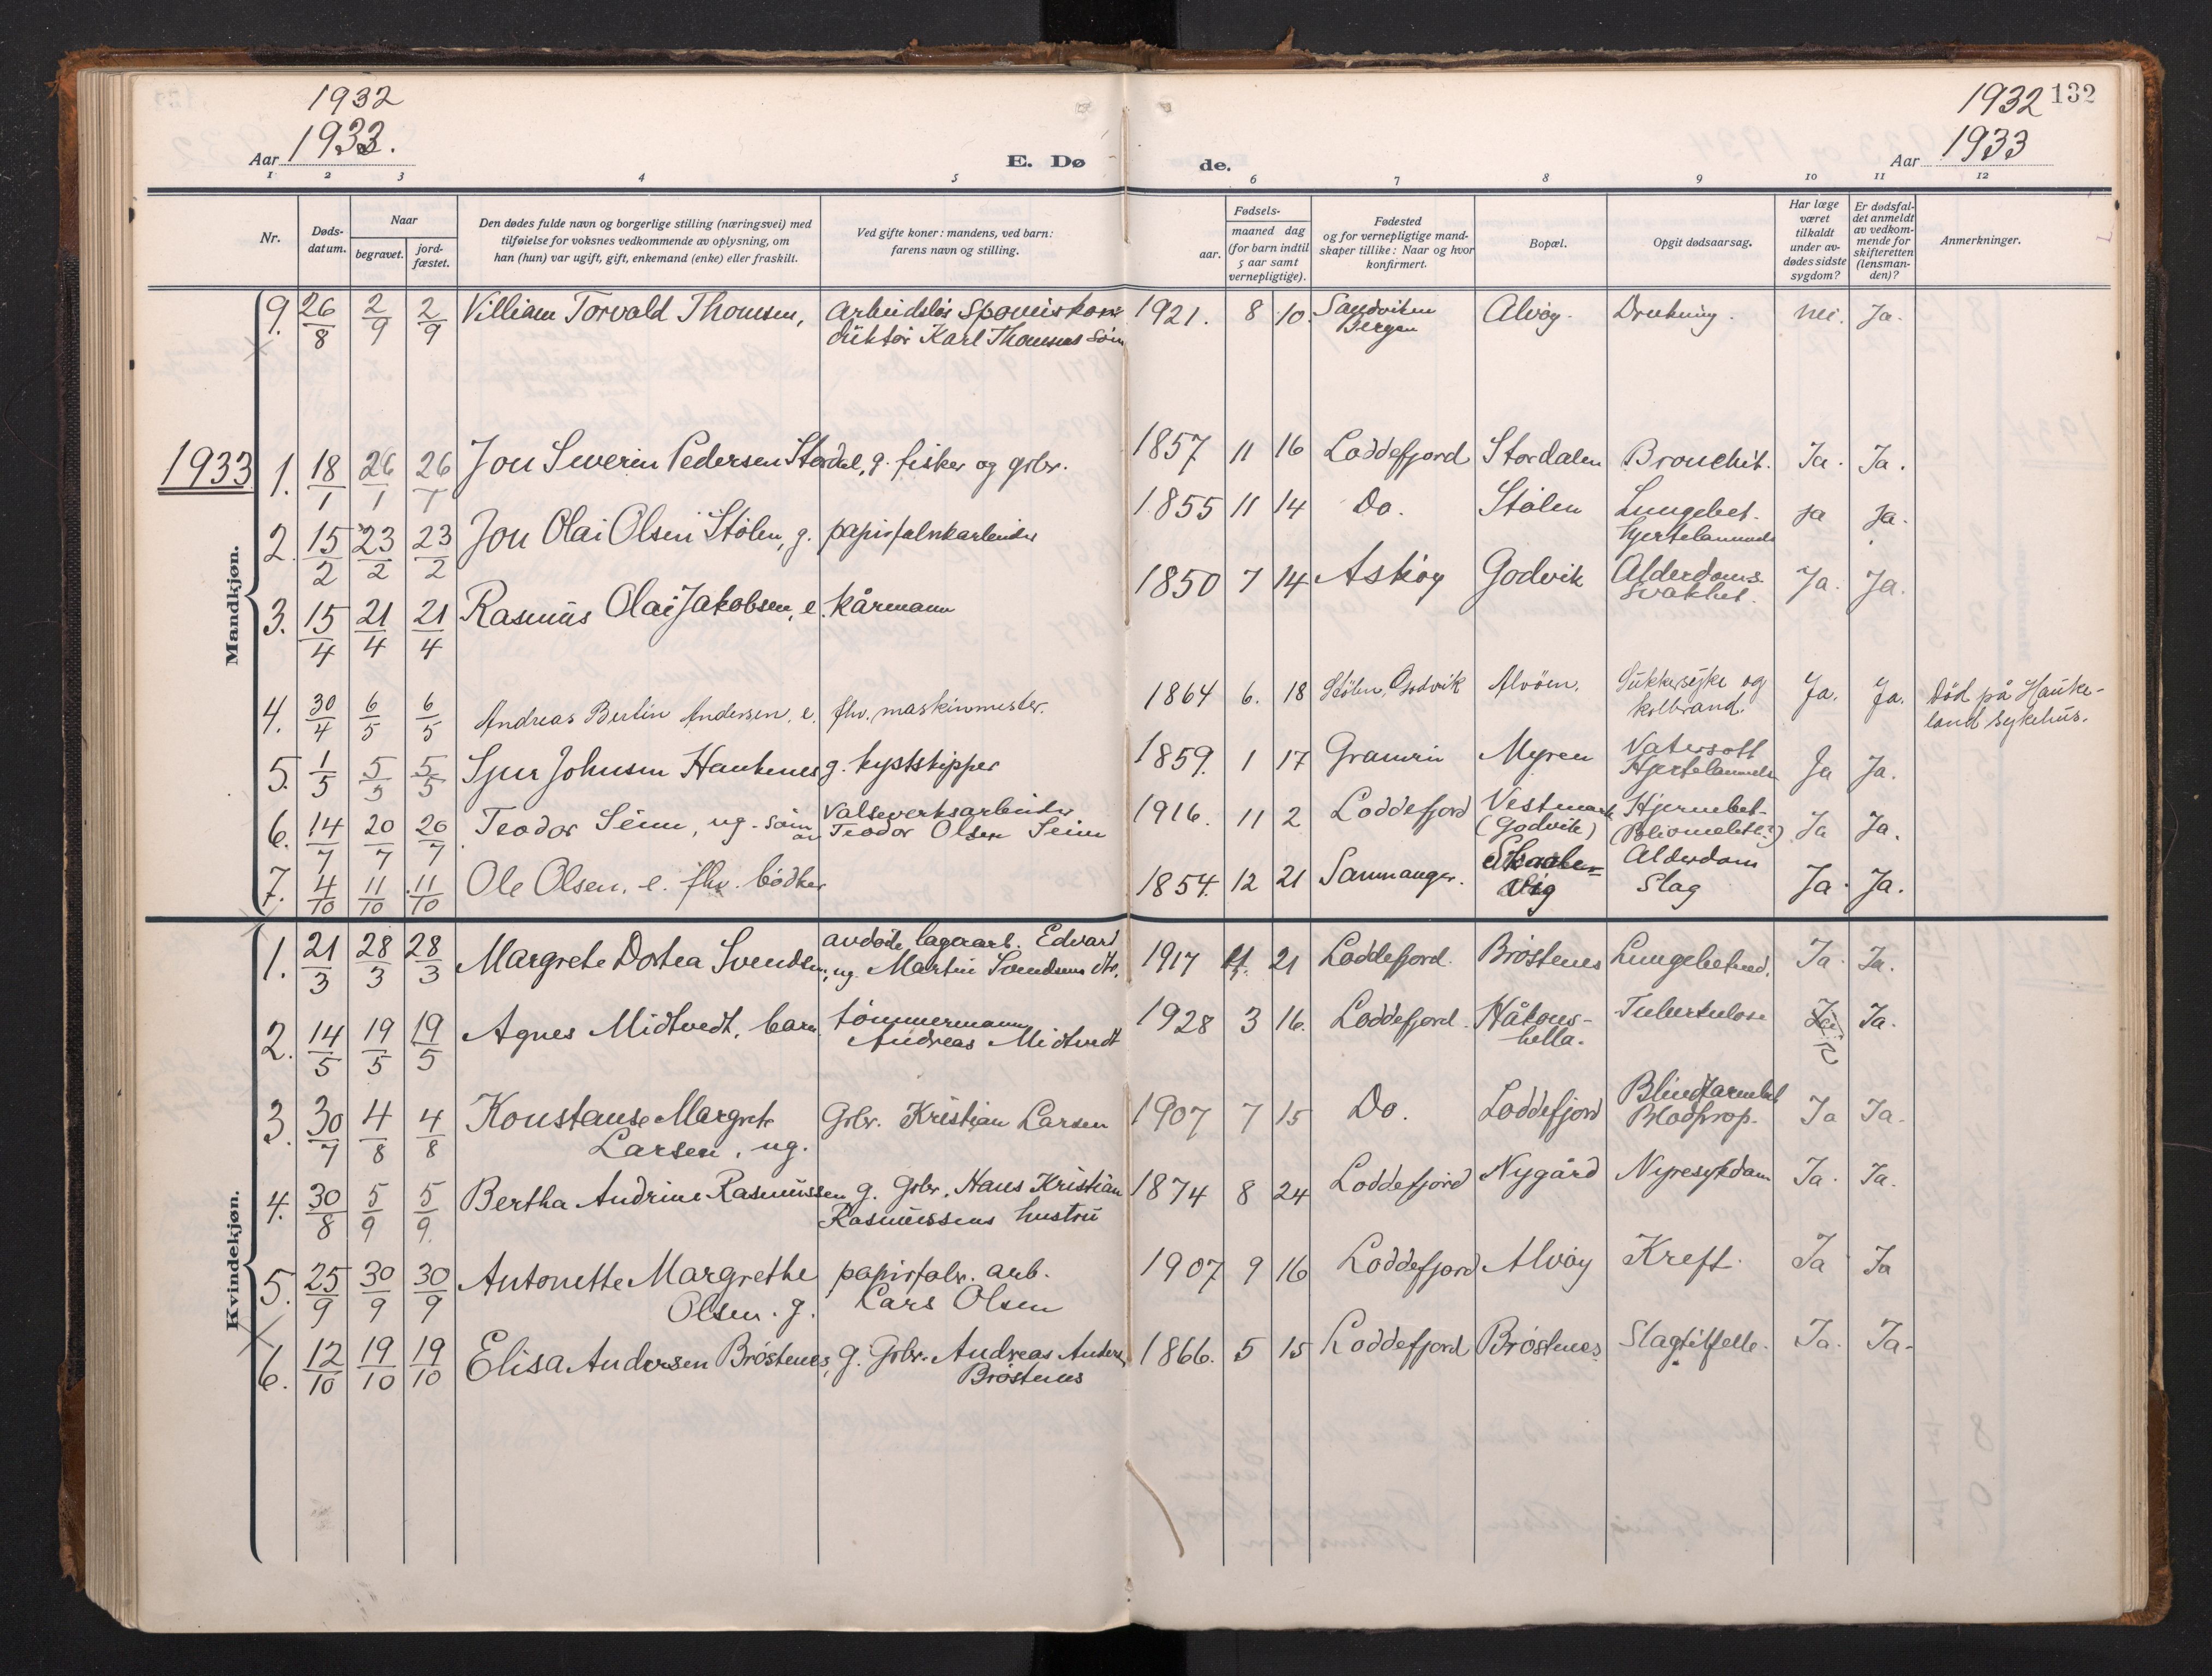 1932
Aar 1933.
E. Dø
de.
1932 132
Aar 1933
1 2 3 4 5 6 7 8 9 10 11 12
Nr.
Døds-
datum.
Naar
begravet.
jord-
fæstet.
Den dødes fulde navn og borgerlige stilling (næringsvei) med
tilføielse for voksnes vedkommende av oplysning, om
han (hun) var ugift, gift, enkemand (enke) eller fraskilt.
Ved gifte koner: mandens, ved barn:
farens navn og stilling.
Fødsels-
aar.
maaned dag
(for barn indtil
5 aar samt
vernepligtige).
Fødested
og for vernepligtige mand-
skaper tillike: Naar og hvor
konfirmert.
Bopæl.
Opgit dødsaarsag.
Har læge
været
tilkaldt
under av-
dødes sidste
sygdom?
Er dødsfal-
det anmeldt
av vedkom-
mende for
skifteretten
(lensman-
den)?
Anmerkninger.
Mandkjøn.
9. 26/8 2/9 2/9 Villiam Torvald Thomsen, arbeidsløs Sporveiskon- 1921. 8 10. Sandviken Alvøy. Drukning. nei. Ja.
duktør Karl Thomsens søn Bergen
1933
1. 18/1 26/1 26/1 Jon Severin Pedersen Stordal, g. fisker og gbr. 1857 11 16 Loddefjord Stordalen Bronchit. Ja. Ja.
2. 15/2 23/2 23/2 Jon Olai Olsen Stølen, g. papirfabrikarbeider 1855 11 14 Do. Stølen Lungebet. ja ja.
Hjertelammelse
3. 15/4 21/4 21/4 Rasmus Olai Jakobsen, e. kårmann 1850 7 14 Askøy Godvik Alderdoms- Ja. Ja.
svakhet.
4. 30/4 6/5 6/5 Andreas Bertin Andersen, e. fhv. maskinmester. 1864 6. 18 Stølen, Godvik Alvøen. Sukkersyke og Ja. Ja. Død på Hauke-
kolbrand. land sykehus.
5. 1/5 5/5 5/5 Sjur Johnsen Haukenes g. kystskipper 1859. 1 17 Granvin Myren Vatersott Ja Ja.
Hjertelammelse
6. 14/7 20/7 20/7 Teodor Seim, ug. søn av Valseverksarbeider 1916. 11 2 Loddefjord Vestmark Hjernebet. Ja Ja.
Teodor Olsen Seim (Godvik) (Poliomelitt?)
7. 4/10 11/10 11/10 Ole Olsen, e. fhv. bødker 1854. 12 21 Samnanger. Skaale- Alderdom Ja. Ja.
vig Slag
Kvindekjøn.
1. 21/3 28/3 28/3 Margrete Dortea Svendsen, ug. avdøde lagerarb. Edvard 1917 21 Loddefjord. Brøstenes Lungebetend. Ja. Ja.
Martin Svendsens dtr.
2. 14/5 19/5 19/5 Agnes Midtvedt, barn tømmermann 1928 3 16. Loddefjord. Håkons- Tuberkulose Ja.
Andreas Midtvedt hella.
3. 30/7 4/8 4/8 Konstanse Margrete Gbr. Kristian Larsen 1907 7 15 Do. Loddefjord Blindtarmbet Ja Ja.
Larsen, ug. Blodprop.
4. 30/8 5/9 5/9 Bertha Andrine Rasmussen g. Gbr. Hans Kristian 1874 8 24 Loddefjord Nygård Nyresykdom Ja. Ja.
Rasmussens hustru
5. 25/9 30/9 30/9 Antonette Margrethe papirfabr. arb. 1907 9 16 Loddefjord Alvøy Kreft. Ja Ja
Olsen. g. Lars Olsen
6. 12/10 19/10 19/10 Elisa Andersen Brøstenes, g. Gbr. Andreas Anders 1866. 5 15 Loddefjord Brøstenes Slagtilfelle. Ja. Ja.
Brøstenes